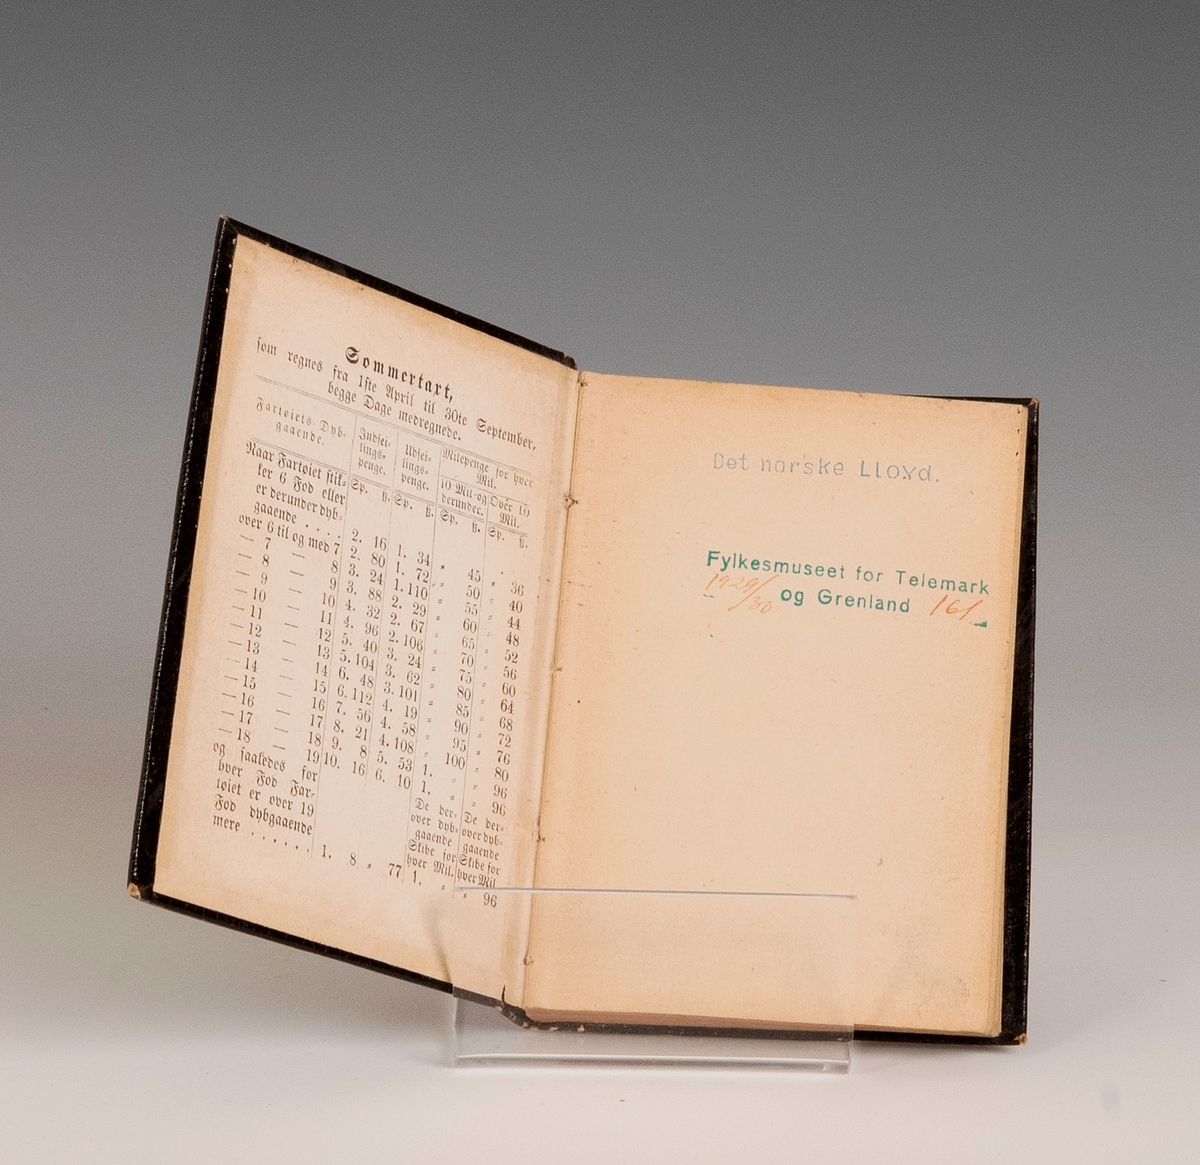 Sommertaxt,
som regnes fra 1ste April til 30te September,
begge Dage medregnede.
Fartøiets Dyb-
gaaende.
Indsei-
lings-
penge.
Udsei-
lings-
penge.
Milepenge for hver
Mil.
10 Mil og
derunder.
Over 10
Mil.
Sp. ß. Sp. ß. Sp. ß. Sp. ß.
Naar Fartøiet stik-
ker 6 Fod eller
er derunder dyb-
gaaende . . . . 2. 16 1. 34 " 45 " 36
over 6 til og med 7 2. 80 1. 72 " 50 " 40
— 7 — 8 3. 24 1. 110 " 55 " 44
— 8 — 9 3. 88 2. 29 " 60 " 48
— 9 — 10 4. 32 2. 67 " 65 " 52
— 10 — 11 4. 96 2. 106 " 70 " 56
— 11 — 12 5. 40 3. 24 " 75 " 60
— 12 — 13 5. 104 3. 62 " 80 " 64
— 13 — 14 6. 48 3. 101 " 85 " 68
— 14 — 15 6. 112 4. 19 " 90 " 72
— 15 — 16 7. 56 4. 58 " 95 " 76
— 16 — 17 8. 21 4. 108 " 100 " 80
— 17 — 18 9. 8 5. 53 1. " " 96
— 18 — 19 10. 16 6. 10 1. " " 96
og saaledes for
hver Fod Far-
tøiet er over 19
Fod dybgaaende
mere . . . . . . 1. 8 " 77 1. " " 96
De der-
over dyb-
gaaende
Skibe for
hver Mil.
De der-
over dyb-
gaaende
Skibe for
hver Mil
Det norske Lloyd.
Fylkesmuseet for Telemark
1929/30 og Grenland 161.